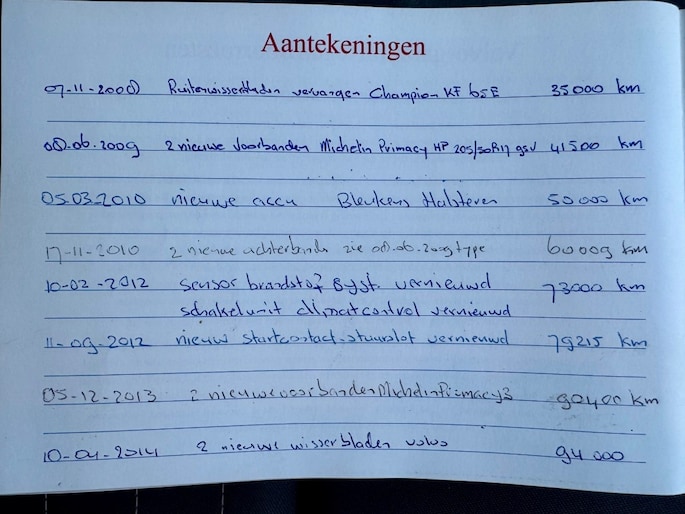 Aantekeningen
07-11-2008 Ruitenwisserbladen vervangen Champion KF 65E 35000 km
08.06.2009 2 nieuwe Voorbanden Michelin Primacy HP 205/50R17 95V 41500 km
05.03.2010 nieuwe accu Bleukens Halsteren 50000 km
17-11-2010 2 nieuwe achterbanden zie 08.06.2009 type 60009 km
10-02-2012 Sensor brandstof Syst. vernieuwd 73000 km
schakelunit climatcontrol vernieuwd
11-09-2012 nieuw startcontact-stuurslot vernieuwd 79215 km
05-12-2013 2 nieuwe voorbanden Michelin Primacy3 90400 km
10-04-2014 2 nieuwe wisserbladen volvo 94000